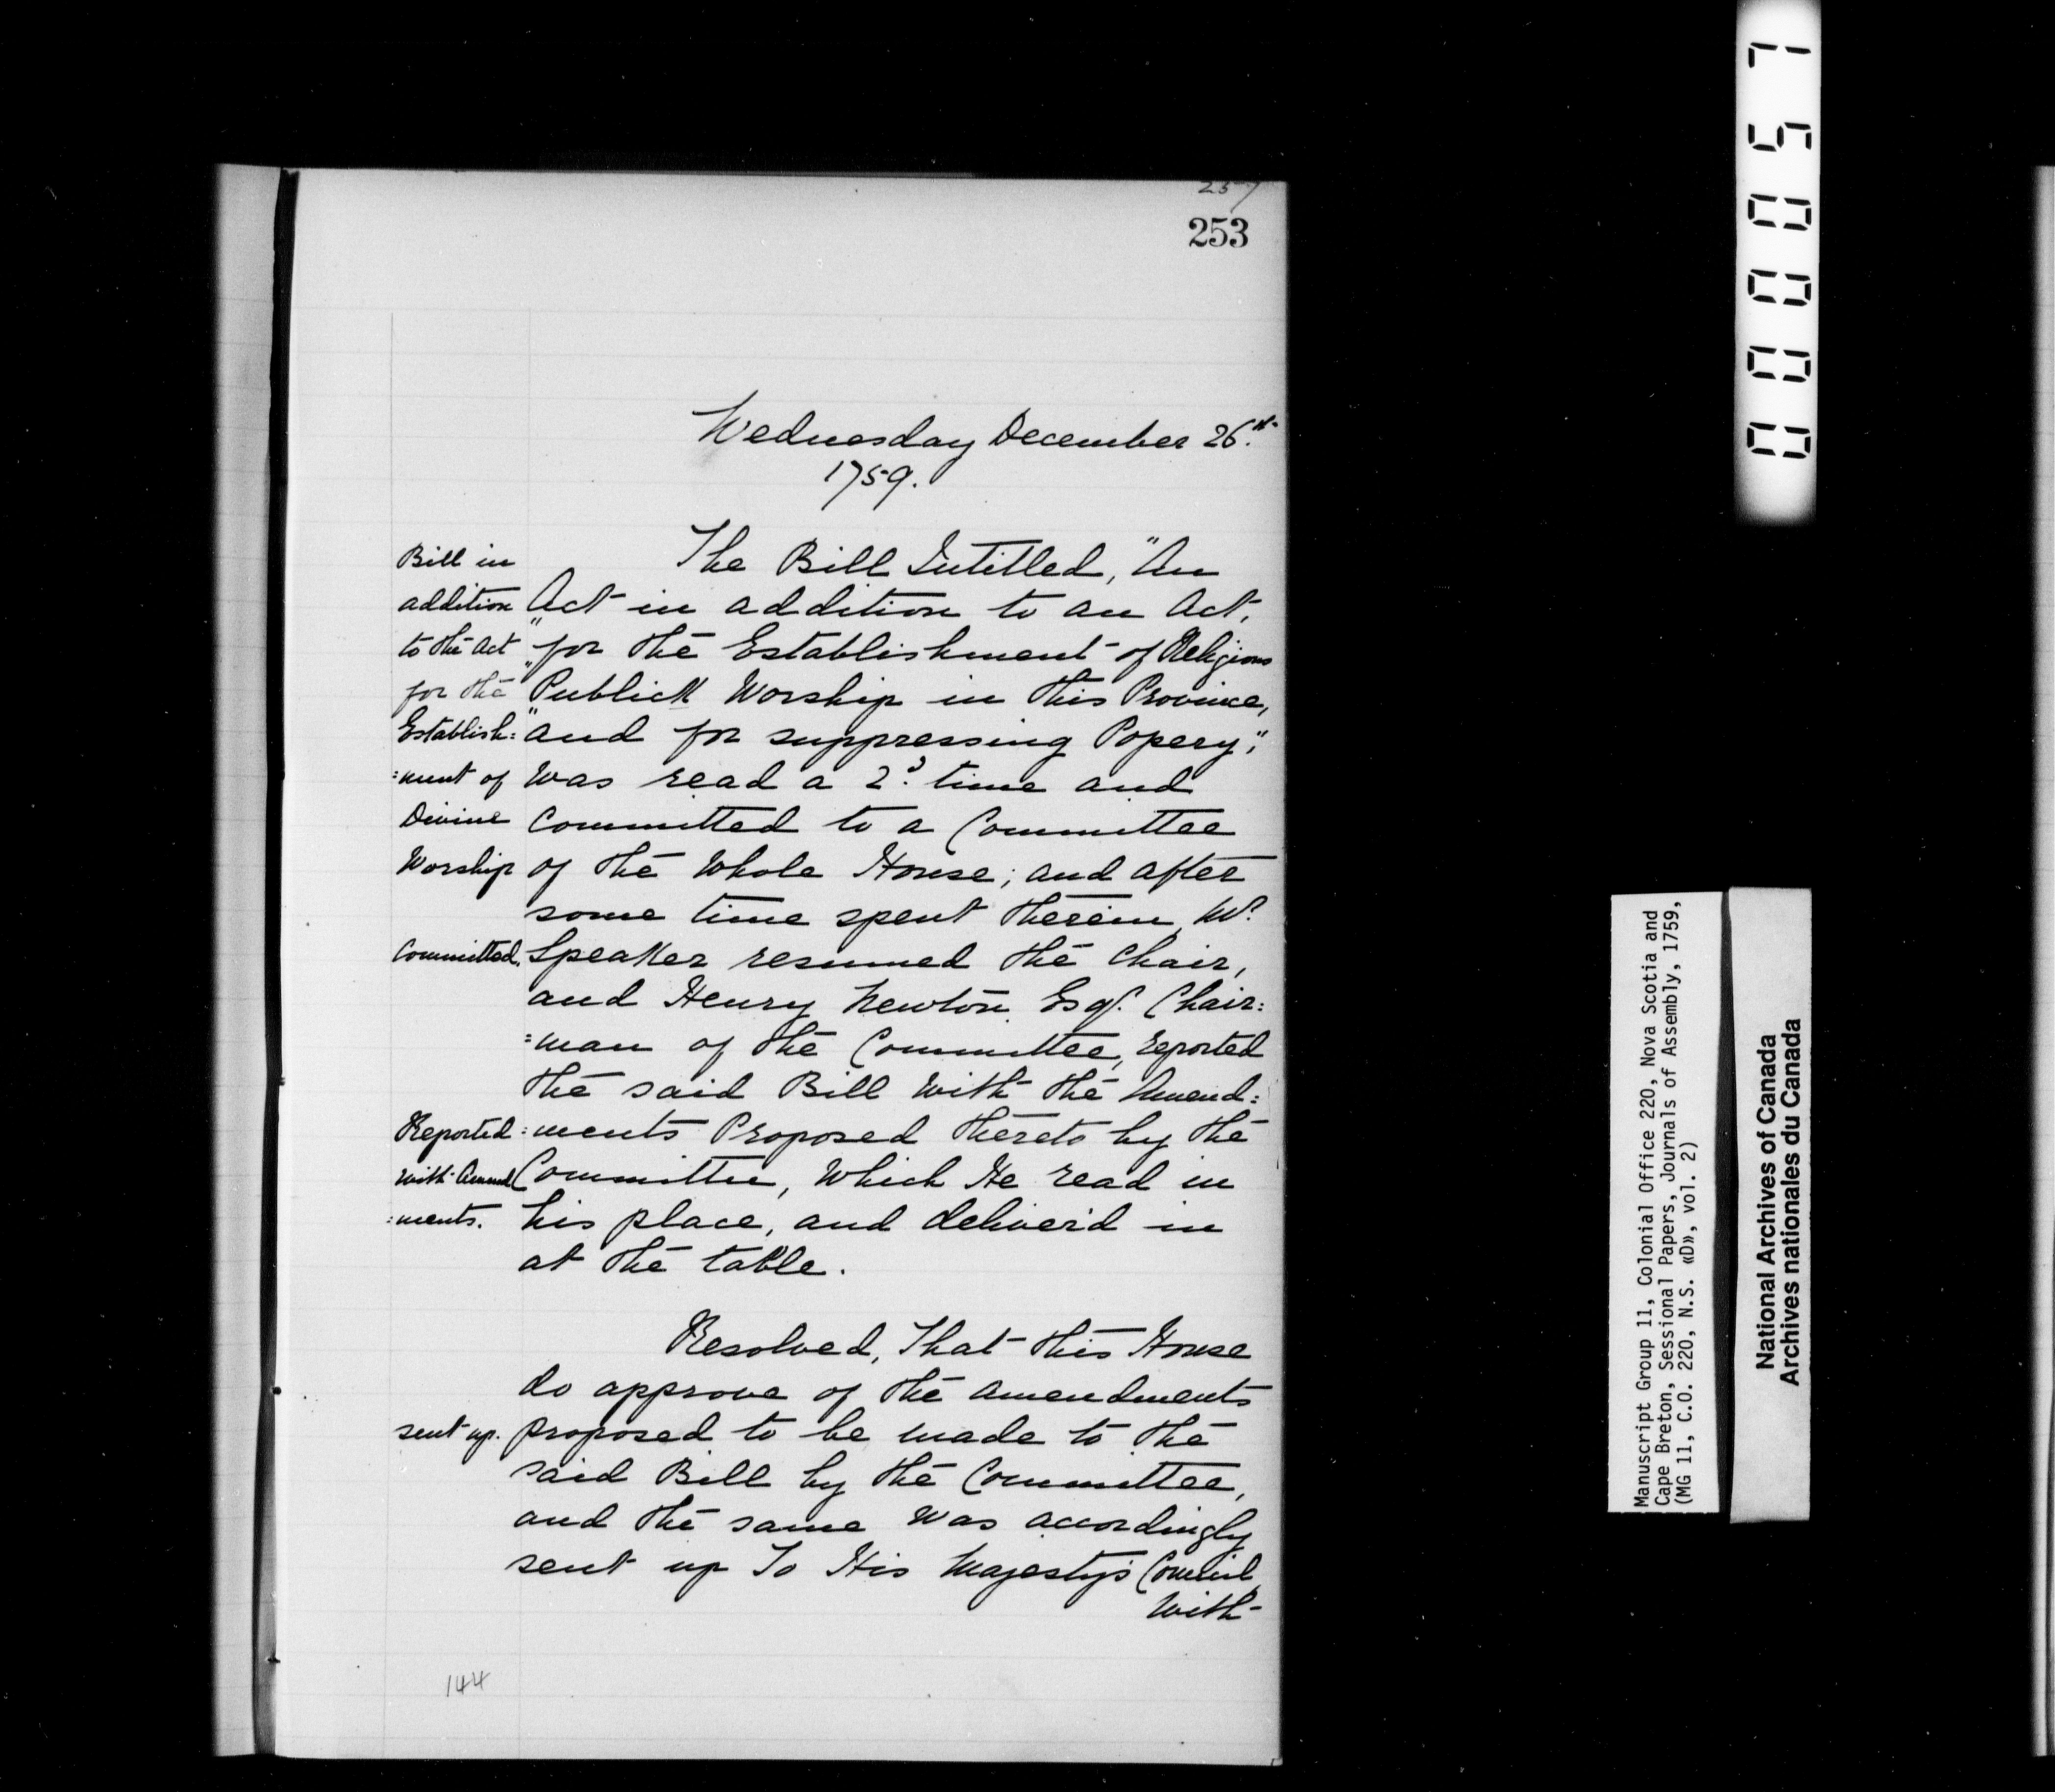 257
253
Wednesday December 26.th
1759.
Bill in
addition
to the Act
for the
Establish:
:ment of
Divine
Worship
Committed.
Reported
with Amend
:ments.
sent up.
The Bill Intitled, "An
Act in addition to an Act,
"for the Establishment of Religious
"Publick Worship in this Province,
"and for suppressing Popery",
was read a 2d. time and
Committed to a Committee
of the Whole House; and after
some time spent therein, Mr.
Speaker resumed the Chair,
and Henry Newton Esqr. Chair:
:man of the Committee, reported
the said Bill with the Amend:
:ments Proposed thereto by the
Committee, Which He read in
his place, and deliver'd in
at the table.
Resolved, That this House
do approve of the amendments
proposed to be made to the
said Bill by the Committee,
and the same was accordingly
sent up To His Majesty's Council
With
144
000057
Manuscript Group 11, Colonial Office 220, Nova Scotia and
Cape Breton, Sessional Papers, Journals of Assembly, 1759,
(MG 11, C.O. 220, N.S. «D», vol. 2)
National Archives of Canada
Archives nationales du Canada